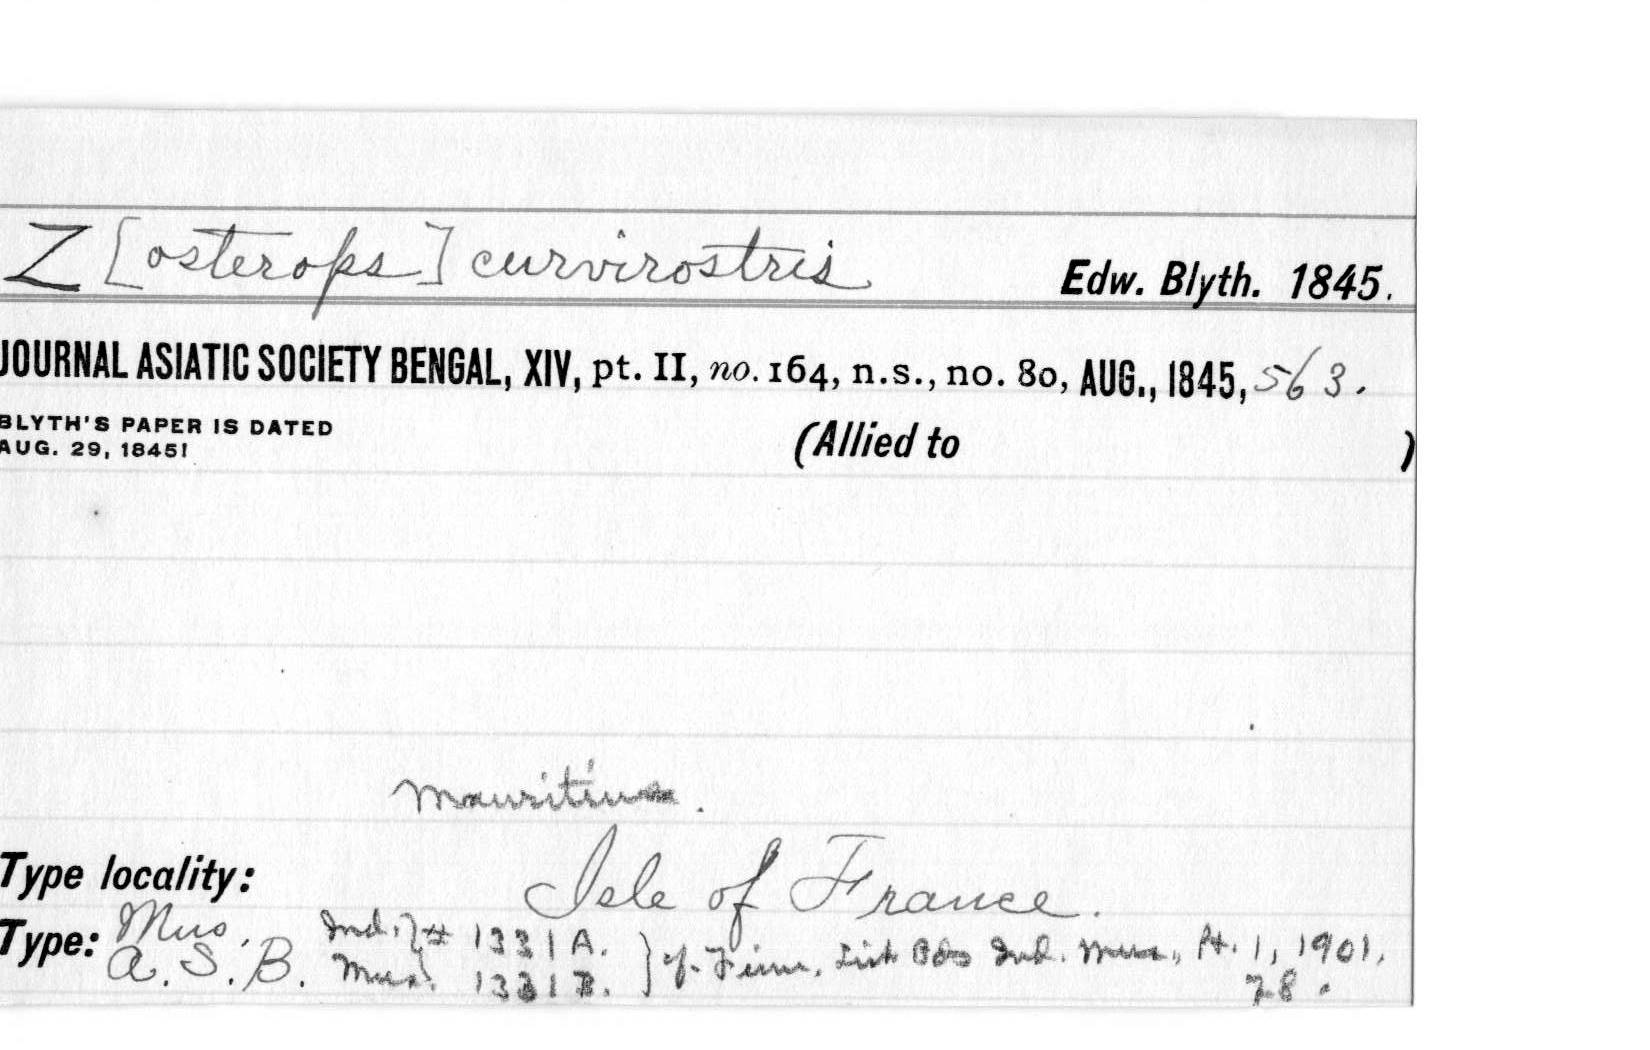 Z[osterops] curvirostris Edw. Blyth. 1845.
JOURNAL ASIATIC SOCIETY BENGAL, XIV, pt. II, no. 164, n.s., no. 80, AUG., 1845, 563.
BLYTH'S PAPER IS DATED
AUG. 29, 1845!
(Allied to )
Mauritius.
Type locality: Isle of France.
Type: Mus. Ind. } # 1331 A. } cf. Finn, List Bds Ind. Mus., Pt. 1, 1901,
A.S.B. Mus. } 1331 B. } 28.